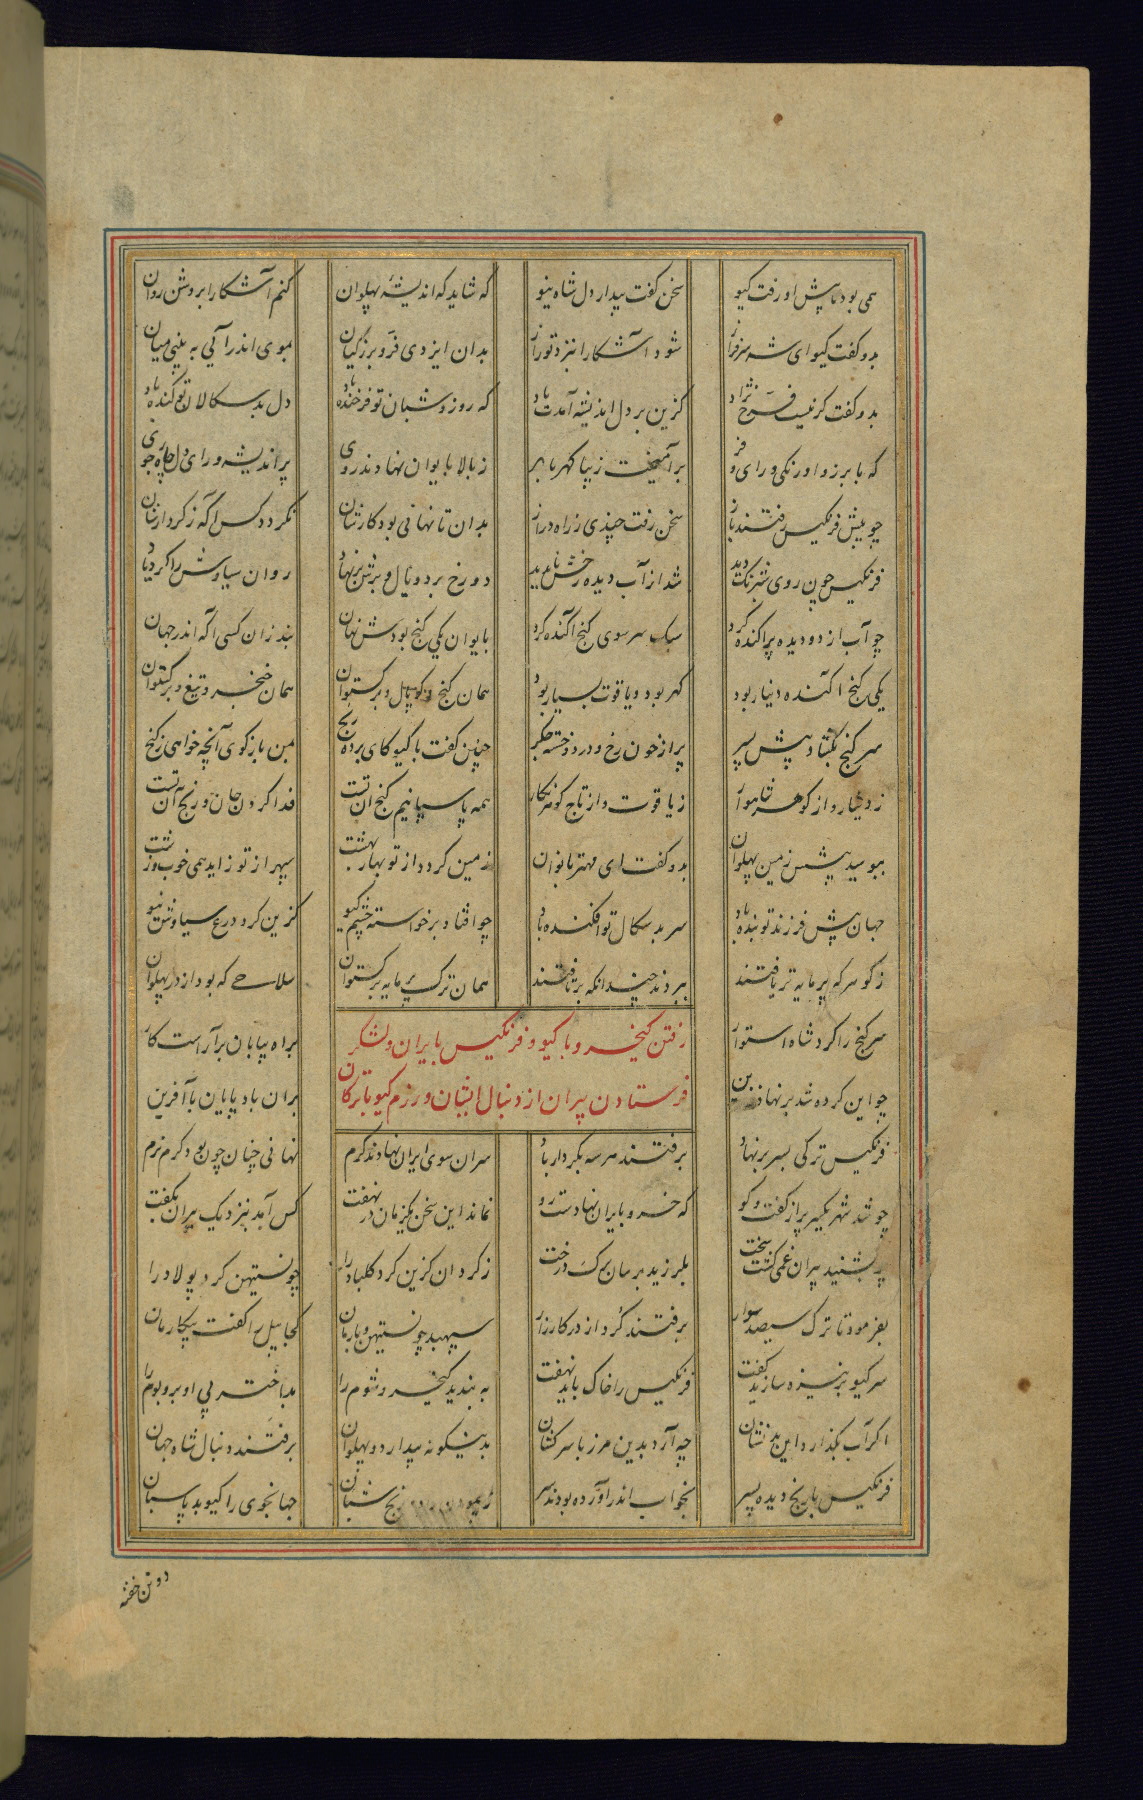 همی بود تا پیش او رفت گیو سخن گفت بیدار دل شاه نیو که شاید که اندیشهٔ پهلوان کنم آشکارا بروشن روان
بدو گفت گیو ای شه سرفراز شود آشکارا نزد تو راز بدان ایزدی فر و برز کیان بموی اندر آیی به بینی میان
بدو گفت کز نیست فرخ نژاد کزین بر دل اندیشه آمدت یاد که روز و شبان تو فرخنده باد دل بدسکالان تو کنده باد
که با برز و اورنگی و رای و فر برآمیخت زیبا گهر با هنر ز بالا بایوان نهادند روی پر اندیشه و رای دل چاره جوی
چو پیش فرنگیس رفتند باز سخن رفت چندی ز راه دراز بدان تا نهانی بود کارشان نگردد کس آگه ز کردارشان
فرنگیس چون روی شبرنگ دید شد از آب دیده رخش ناپدید دو رخ بر دو یال و برش بر نهاد روان سیاوش را کرد یاد
چو آب از دو دیده پراکنده کرد سبک سر سوی گنج آگنده کرد بایوان یکی گنج بودش نهان نبد زان کسی آگه اندر جهان
یکی گنج آگنده دینار بود گهر بود و یاقوت بسیار بود همان گنج و کوپال و برگستوان همان خنجر و تیغ و برگستوان
سر گنج بگشاد پیش پسر پر از خون رخ و درد خسته جگر چنین گفت با گیو کای برده رنج بمن باز گوی آنچه خواهی ز گنج
ز دینار و از گوهر شاهوار ز یاقوت و از تاج گوهر نگار همه پاسبانیم گنج آن تست فدا کردن جان و رنج آن تست
ببوسید پیشش زمین پهلوان بدو گفت ای مهتر بانوان زمین گردد از تو بهار بهشت سپهر از تو زاید همی خوب و زشت
جهان پیش فرزند تو بنده باد سر بدسکال تو افکنده باد چو افتاد بر خواسته چشم گیو گزین کرد درع سیاوش نیو
ز گوهر که پر مایه تر یافتند ببردند چندانکه بر تافتند همان ترک پر مایه برگستوان سلاحی که بود از در پهلوان
سر گنج را کرد شاه استوار براه بیابان برآراست کار
رفتن کیخسرو با گیو و فرنگیس بایران و لشکر
چو این کرده شد بر نهاد زین بران بادپایان بآفرین
فرستادن پیران از دنبال ایشان و رزم گیو با ترکان
فرنگیس ترکی بسر بر نهاد برفتند هر سه بکردار باد سران سوی ایران نهادند گرم نهانی چنان چون بود گرم نرم
چو شد شهر یکسر پر از گفت و گو که خسرو بایران نهادست رو نماند این سخن یکزمان در نهفت کس آمد بنزدیک پیران بگفت
چو بشنید پیران غمی گشت سخت بلرزید بر سان برگ درخت ز گردان گزین کرد کلباد را چو نستیهن گرد پولاد را
بفرمود تا ترک سیصد سوار برفتند گرد از در کارزار سپهبد چو نستیهن و بارمان کجا پیل را گفت
سر گیو بر نیزه سازید گفت فرنگیس را خاک باید نهفت به بندید کیخسرو شوم را بد اختر پی او بر و بوم را
اگر آب بگذارد این بدنشان چه آرد بدین مرز با سرکشان بدینگونه بیدار دو پهلوان برفتند دنبال شاه جهان
فرنگیس با رنج دیده پسر بخواب اندر آورده بودند سر رنج شبان جهانجوی را گیو بد پاسبان
دو تن خفته